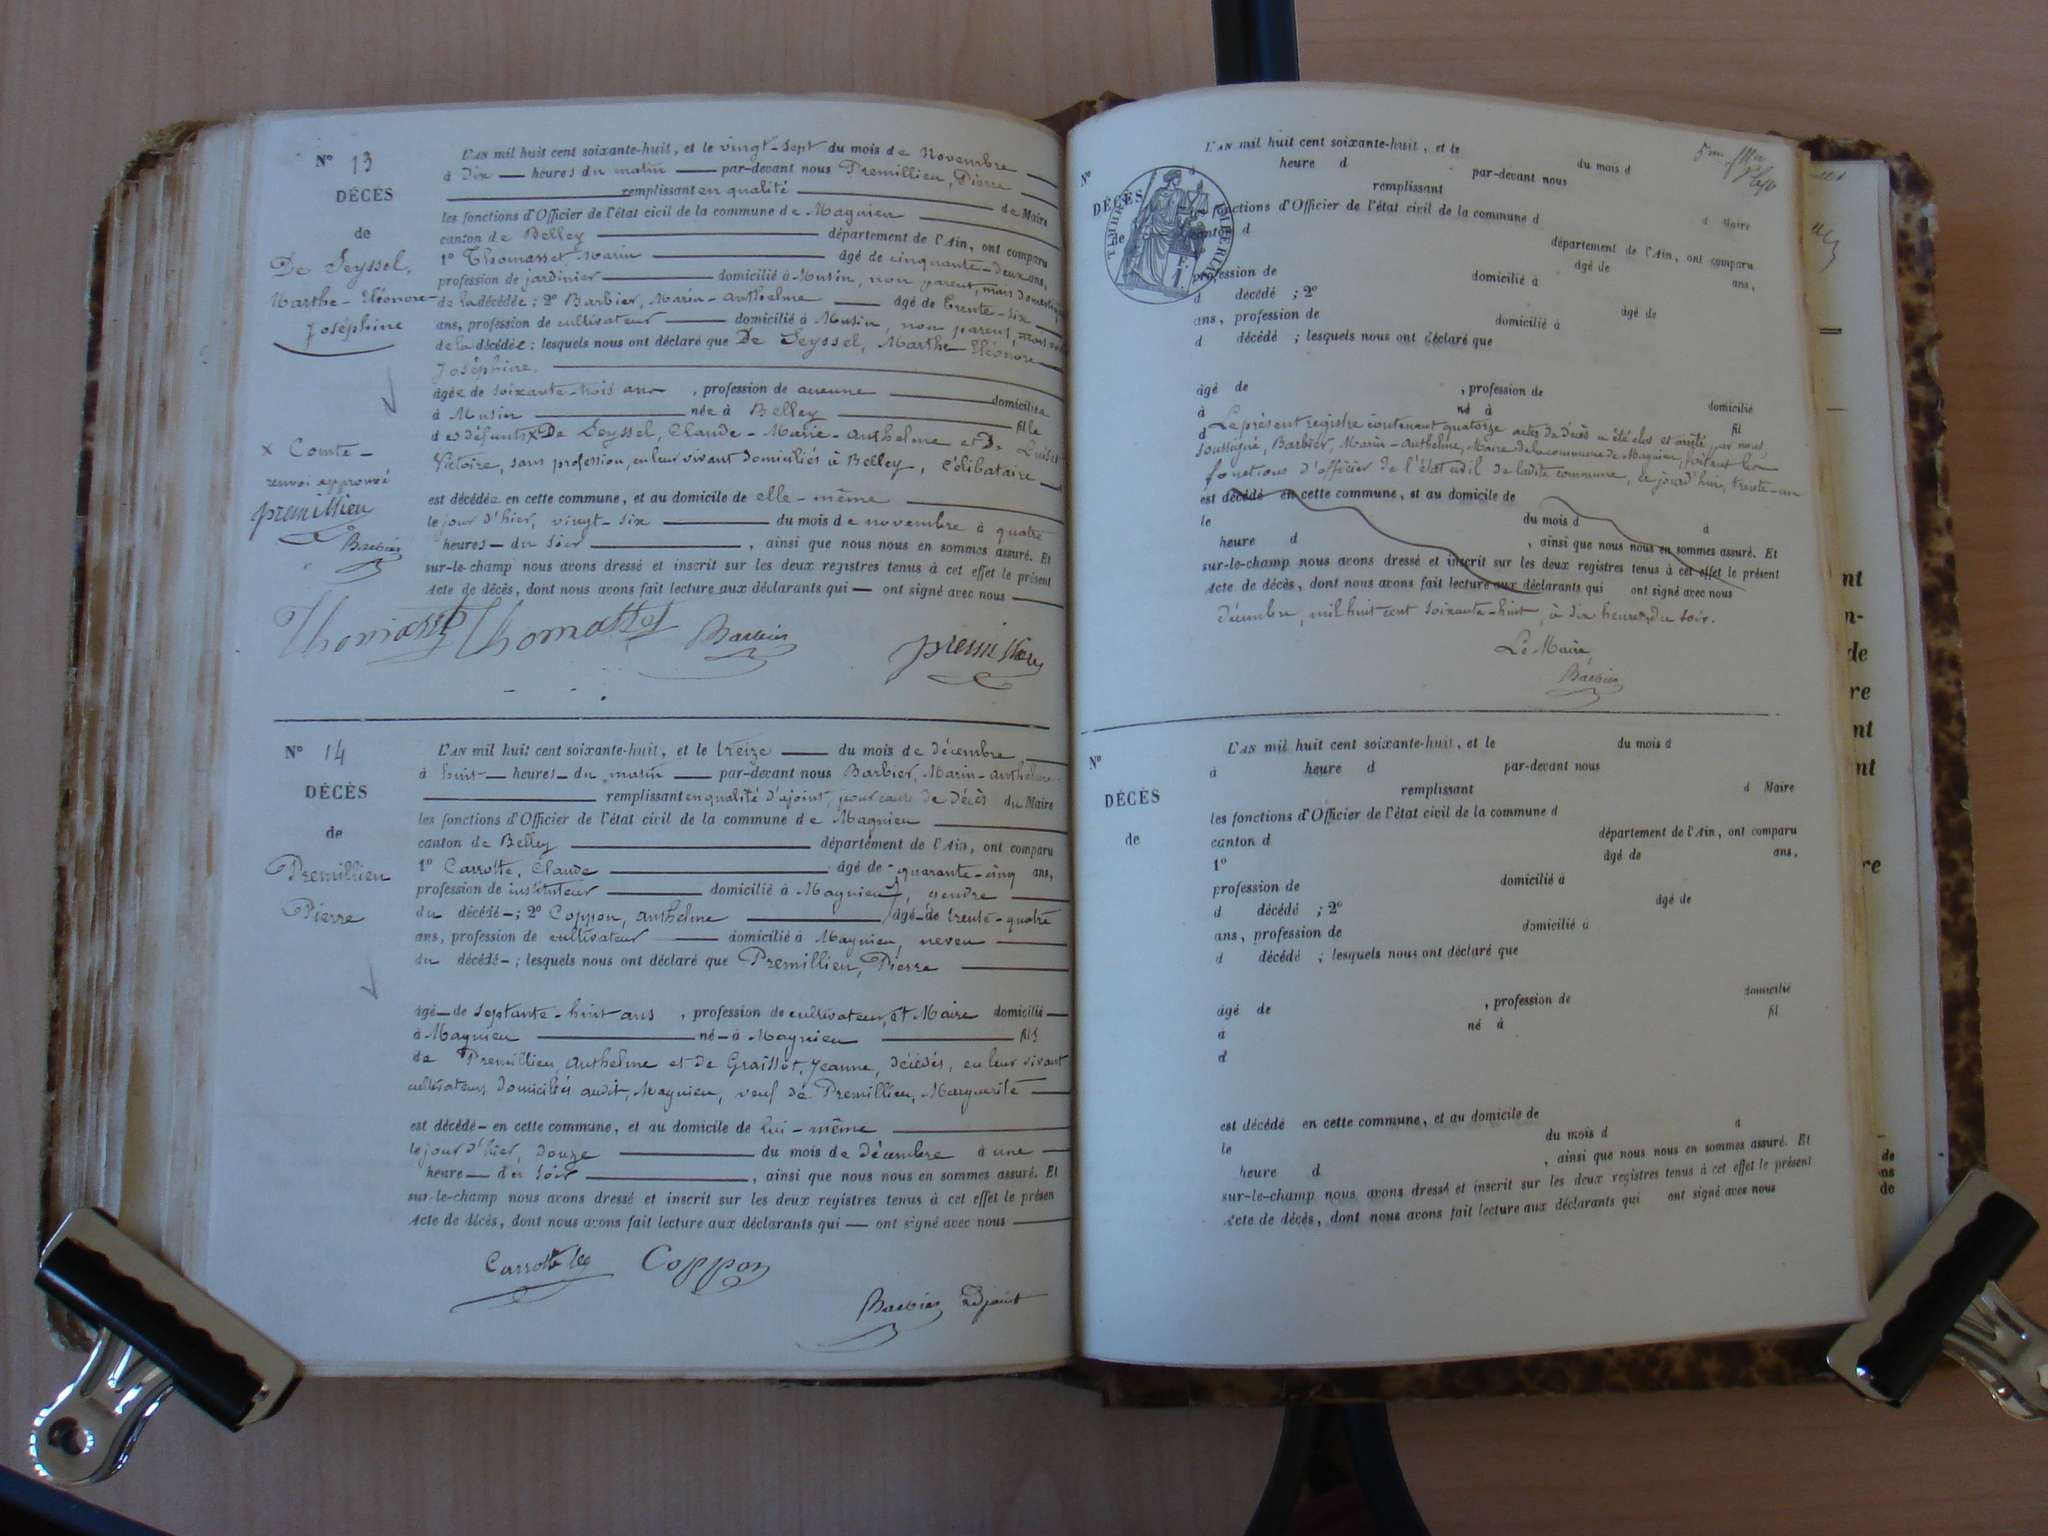 N° 13
DÉCÈS
de
De Seyssel,
Marthe-Eléonore-
Joséphine
x Comte-
renvoi approuvé
premillieu
Barbier
L'AN mil huit cent soixante-huit, et le vingt-sept du mois de Novembre
à Dix heures du matin par-devant nous Premillieu, Pierre
remplissant en qualité de Maire
les fonctions d'Officier de l'état civil de la commune de Magnieu
canton de Belley département de l'Ain, ont comparu
1° Thomasset Marin âgé de cinquante-deux ans,
profession de jardinier domicilié à Musin, non parent, mais domestique
de la décédée ; 2° Barbier, Marin-Anthelme âgé de trente-six
ans, profession de cultivateur domicilié à Musin, non parent, mais
de la décédée : lesquels nous ont déclaré que De Seyssel, Marthe Eléonore
Joséphine,
âgée de soixante-trois ans , profession de aucune domiciliée
à Musin née à Belley fille
des défunts x De Seyssel, Claude-Marie-Anthelme et D.
Victoire, sans profession, en leur vivant domiciliés à Belley, célibataire
est décédée en cette commune, et au domicile de elle-même
le jour d'hier, vingt-six du mois de novembre à quatre
heures du soir , ainsi que nous nous en sommes assuré. Et
sur-le-champ nous avons dressé et inscrit sur les deux registres tenus à cet effet le présent
Acte de décès, dont nous avons fait lecture aux déclarants qui ont signé avec nous
Thomasset Thomasset Barbier premillieu
N° 14
DÉCÈS
de
Premillieu
Pierre
L'AN mil huit cent soixante-huit, et le treize du mois de décembre
à huit heures du matin par-devant nous Barbier, Marin-Anthelme
remplissant en qualité d'ajoint, pour cause de décès du Maire
les fonctions d'Officier de l'état civil de la commune de Magnieu
canton de Belley département de l'Ain, ont comparu
1° Carrotte, Claude âgé de quarante-cinq ans,
profession de instituteur domicilié à Magnieu, gendre
du décédé ; 2° Coppon, Anthelme âgé de trente-quatre
ans, profession de cultivateur domicilié à Magnieu, neveu
du décédé ; lesquels nous ont déclaré que Premillieu, Pierre
âgé de septante-huit ans , profession de cultivateur, et Maire domicilié
à Magnieu né à Magnieu fils
de Premillieu, Anthelme et de Graissot, Jeanne, décédés, en leur vivant
cultivateurs domiciliés audit Magnieu, veuf de Premillieu, Marguerite
est décédé en cette commune, et au domicile de lui-même
le jour d'hier, douze du mois de décembre à une
heure du soir , ainsi que nous nous en sommes assuré. Et
sur-le-champ nous avons dressé et inscrit sur les deux registres tenus à cet effet le présen
Acte de décès, dont nous avons fait lecture aux déclarants qui ont signé avec nous
Carrotte Coppon
Barbier adjoint
N°
DÉCÈS
de
TIMBRE IMPÉRIAL
L'AN mil huit cent soixante-huit, et le du mois d
heure d par-devant nous
remplissant d Maire
les fonctions d'Officier de l'état civil de la commune d
canton d département de l'Ain, ont comparu
âgé de ans,
profession de domicilié à
d décédé ; 2° âgé de
ans, profession de domicilié à
d décédé ; lesquels nous ont déclaré que
âgé de , profession de domicilié
à né à fil
d Le présent registre contenant quatorze actes de décès a été clos et arrêté par nous,
soussigné, Barbier, Marin-Anthelme, Maire de la commune de Magnieu, faisant les
fonctions d'officier de l'état civil de ladite commune, ce jourd'hui, trente-un
est décédé en cette commune, et au domicile de
le du mois d à
heure d , ainsi que nous nous en sommes assuré. Et
sur-le-champ nous avons dressé et inscrit sur les deux registres tenus à cet effet le présent
Acte de décès, dont nous avons fait lecture aux déclarants qui ont signé avec nous
décembre, mil huit cent soixante-huit, à six heures du soir.
Le Maire,
Barbier
N°
DÉCÈS
de
L'AN mil huit cent soixante-huit, et le du mois d
à heure d par-devant nous
remplissant d Maire
les fonctions d'Officier de l'état civil de la commune d
canton d département de l'Ain, ont comparu
1° âgé de ans,
profession de domicilié à
d décédé ; 2° âgé de
ans, profession de domicilié à
d décédé ; lesquels nous ont déclaré que
âgé de , profession de domicilié
à né à fil
d
est décédé en cette commune, et au domicile de
le du mois d à
heure d , ainsi que nous nous en sommes assuré. Et
sur-le-champ nous avons dressé et inscrit sur les deux registres tenus à cet effet le présent
Acte de décès, dont nous avons fait lecture aux déclarants qui ont signé avec nous